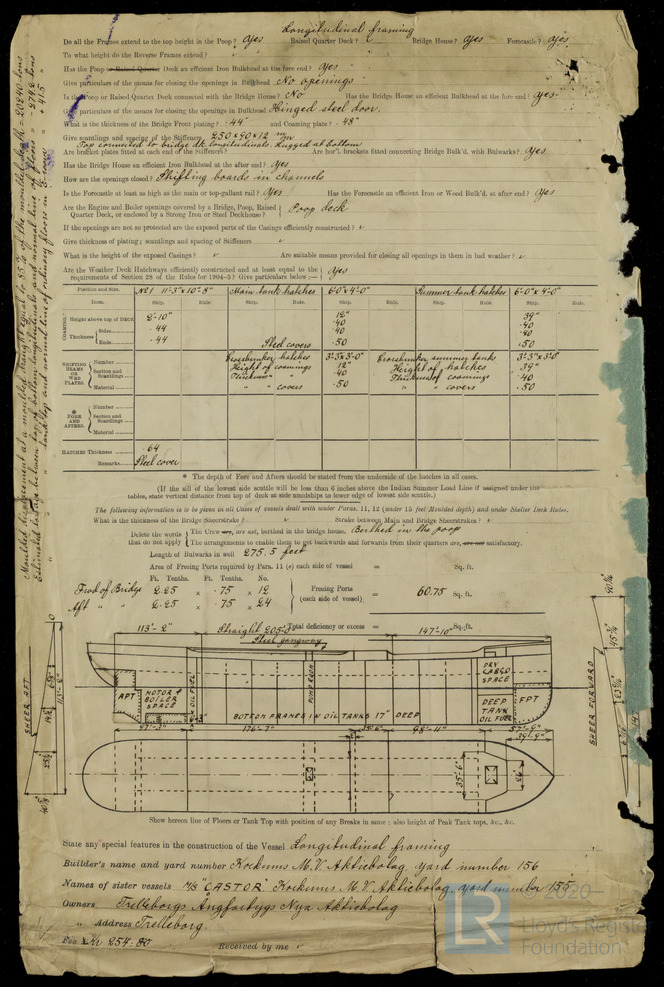 Longitudinal framing
Do all the Frames extend to the top height in the Poop? Yes Raised Quarter Deck? Bridge House? yes Forecastle? yes
To what height do the Reverse Frames extend?
Has the Poop or Raised Quarter Deck an efficient Iron Bulkhead at the fore end? yes
Give particulars of the means for closing the openings in Bulkhead No openings
Is the Poop or Raised Quarter Deck connected with the Bridge House? No Has the Bridge House an efficient Bulkhead at the fore end? yes
particulars of the means for closing the openings in Bulkhead Hinged steel door.
What is the thickness of the Bridge Front plating? .44" and Coaming plate .48"
Give scantlings and spacing of the Stiffeners 250 x 90 x 12 m/m
Top connected to bridge dk. longitudinals. Lugged at bottom
Are bracket plates fitted at each end of the Stiffeners? Are hor'l. brackets fitted connecting Bridge Bulk'd. with Bulwarks? Yes
Has the Bridge House an efficient Iron Bulkhead at the after end? yes
How are the openings closed? Shifting boards in channels
Is the Forecastle at least as high as the main or top-gallant rail? Yes Has the Forecastle an efficient Iron or Wood Bulk'd. at after end? yes
Are the Engine and Boiler openings covered by a Bridge, Poop, Raised Quarter Deck, or enclosed by a Strong Iron or Steel Deckhouse? Poop deck
If the openings are not so protected are the exposed parts of the Casings efficiently constructed?
Give thickness of plating; scantlings and spacing of Stiffeners
What is the height of the exposed Casings? Are suitable means provided for closing all openings in them in bad weather?
Are the Weather Deck Hatchways efficiently constructed and at least equal to the requirements of Section 28 of the Rules for 1904-5? Give particulars below:— yes
Position and Size. No 1 11'-3" x 10'-8" Main tank hatches 6'-0" x 4'-0" Summer tank hatches 6'-0" x 4'-0"
Item. Ship. Rule. Ship. Rule. Ship. Rule. Ship. Rule. Ship. Rule.
COAMING Height above top of DECK 2'-10" 12" 39"
Thickness Sides .44 .40 .40
.40 .40
Ends .44 Steel covers .50 .50
SHIFTING BEAMS OR WEB PLATES. Number Crossbunker hatches 3'-3" x 3'-0" Crossbunker summer tank hatches 3'-3" x 3'-0"
Section and Scantlings Height of coamings 12" Height of 39"
Thickness " .40 Thickness of coamings .40
Material " " covers .50 " " covers .50
FORE AND AFTERS. Number
Section and Scantlings
Material
HATCHES Thickness .64
Remarks Steel cover
* The depth of Fore and Afters should be stated from the underside of the hatches in all cases.
(If the sill of the lowest side scuttle will be less than 6 inches above the Indian Summer Load Line if assigned under the
tables, state vertical distance from top of deck at side amidships to lower edge of lowest side scuttle.)
The following information is to be given in all Cases of Vessels dealt with under Paras. 11, 12 (under 15 feet Moulded depth) and under Shelter Deck Rules.
What is the thickness of the Bridge Sheerstrake? Strake between Main and Bridge Sheerstrakes?
Delete the words that do not apply The Crew are, are not, berthed in the bridge house. Berthed in the poop
The arrangements to enable them to get backwards and forwards from their quarters are, are not satisfactory.
Length of Bulwarks in well 275.5 feet
Area of Freeing Ports required by Para. 11 (e) each side of vessel = Sq. ft.
Ft. Tenths. Ft. Tenths. No.
Fwd of Bridge 2.25 x .75 x 12
Aft " " 2.25 x .75 x 24
Freing Ports (each side of vessel) = 60.75 Sq. ft.
Total deficiency or excess = Sq. ft.
113'-2" Straight 205'-0" 147'-10"
Steel gangway
APT MOTOR & BOILER SPACE OIL FUEL PUMP ROOM DRY CARGO SPACE DEEP TANK OIL FUEL FPT
BOTTOM FRAMES IN OIL TANKS 17" DEEP
176'-7" 98'-11"
39'-9"
35'-6" 26'
SHEER AFT
SHEER FORWARD
Show hereon line of Floors or Tank Top with position of any Breaks in same; also height of Peak Tank tops, &c., &c.
State any special features in the construction of the Vessel Longitudinal framing
Builder's name and yard number Kockums M.V. Aktiebolag, yard number 156
Names of sister vessels M/S "CASTOR" Kockums M.V. Aktiebolag, yard number 155
Owners Trelleborgs Ångfartygs Nya Aktiebolag
" Address Trelleborg.
Fee Kr 254.80 Received by me
© 2020
LR Lloyd's Register
Foundation